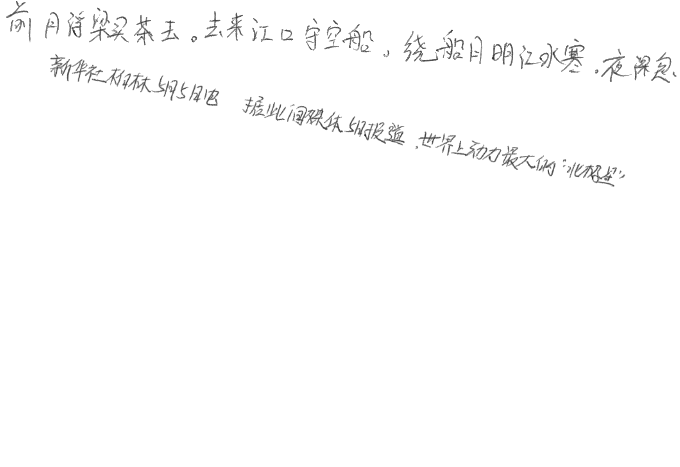 前月浮梁买茶去。去来江口守空船，绕船月明江水寒。夜深忽
新华社柏林5月5日电 据此间媒体5日报道，世界上动力最大的“北极星”